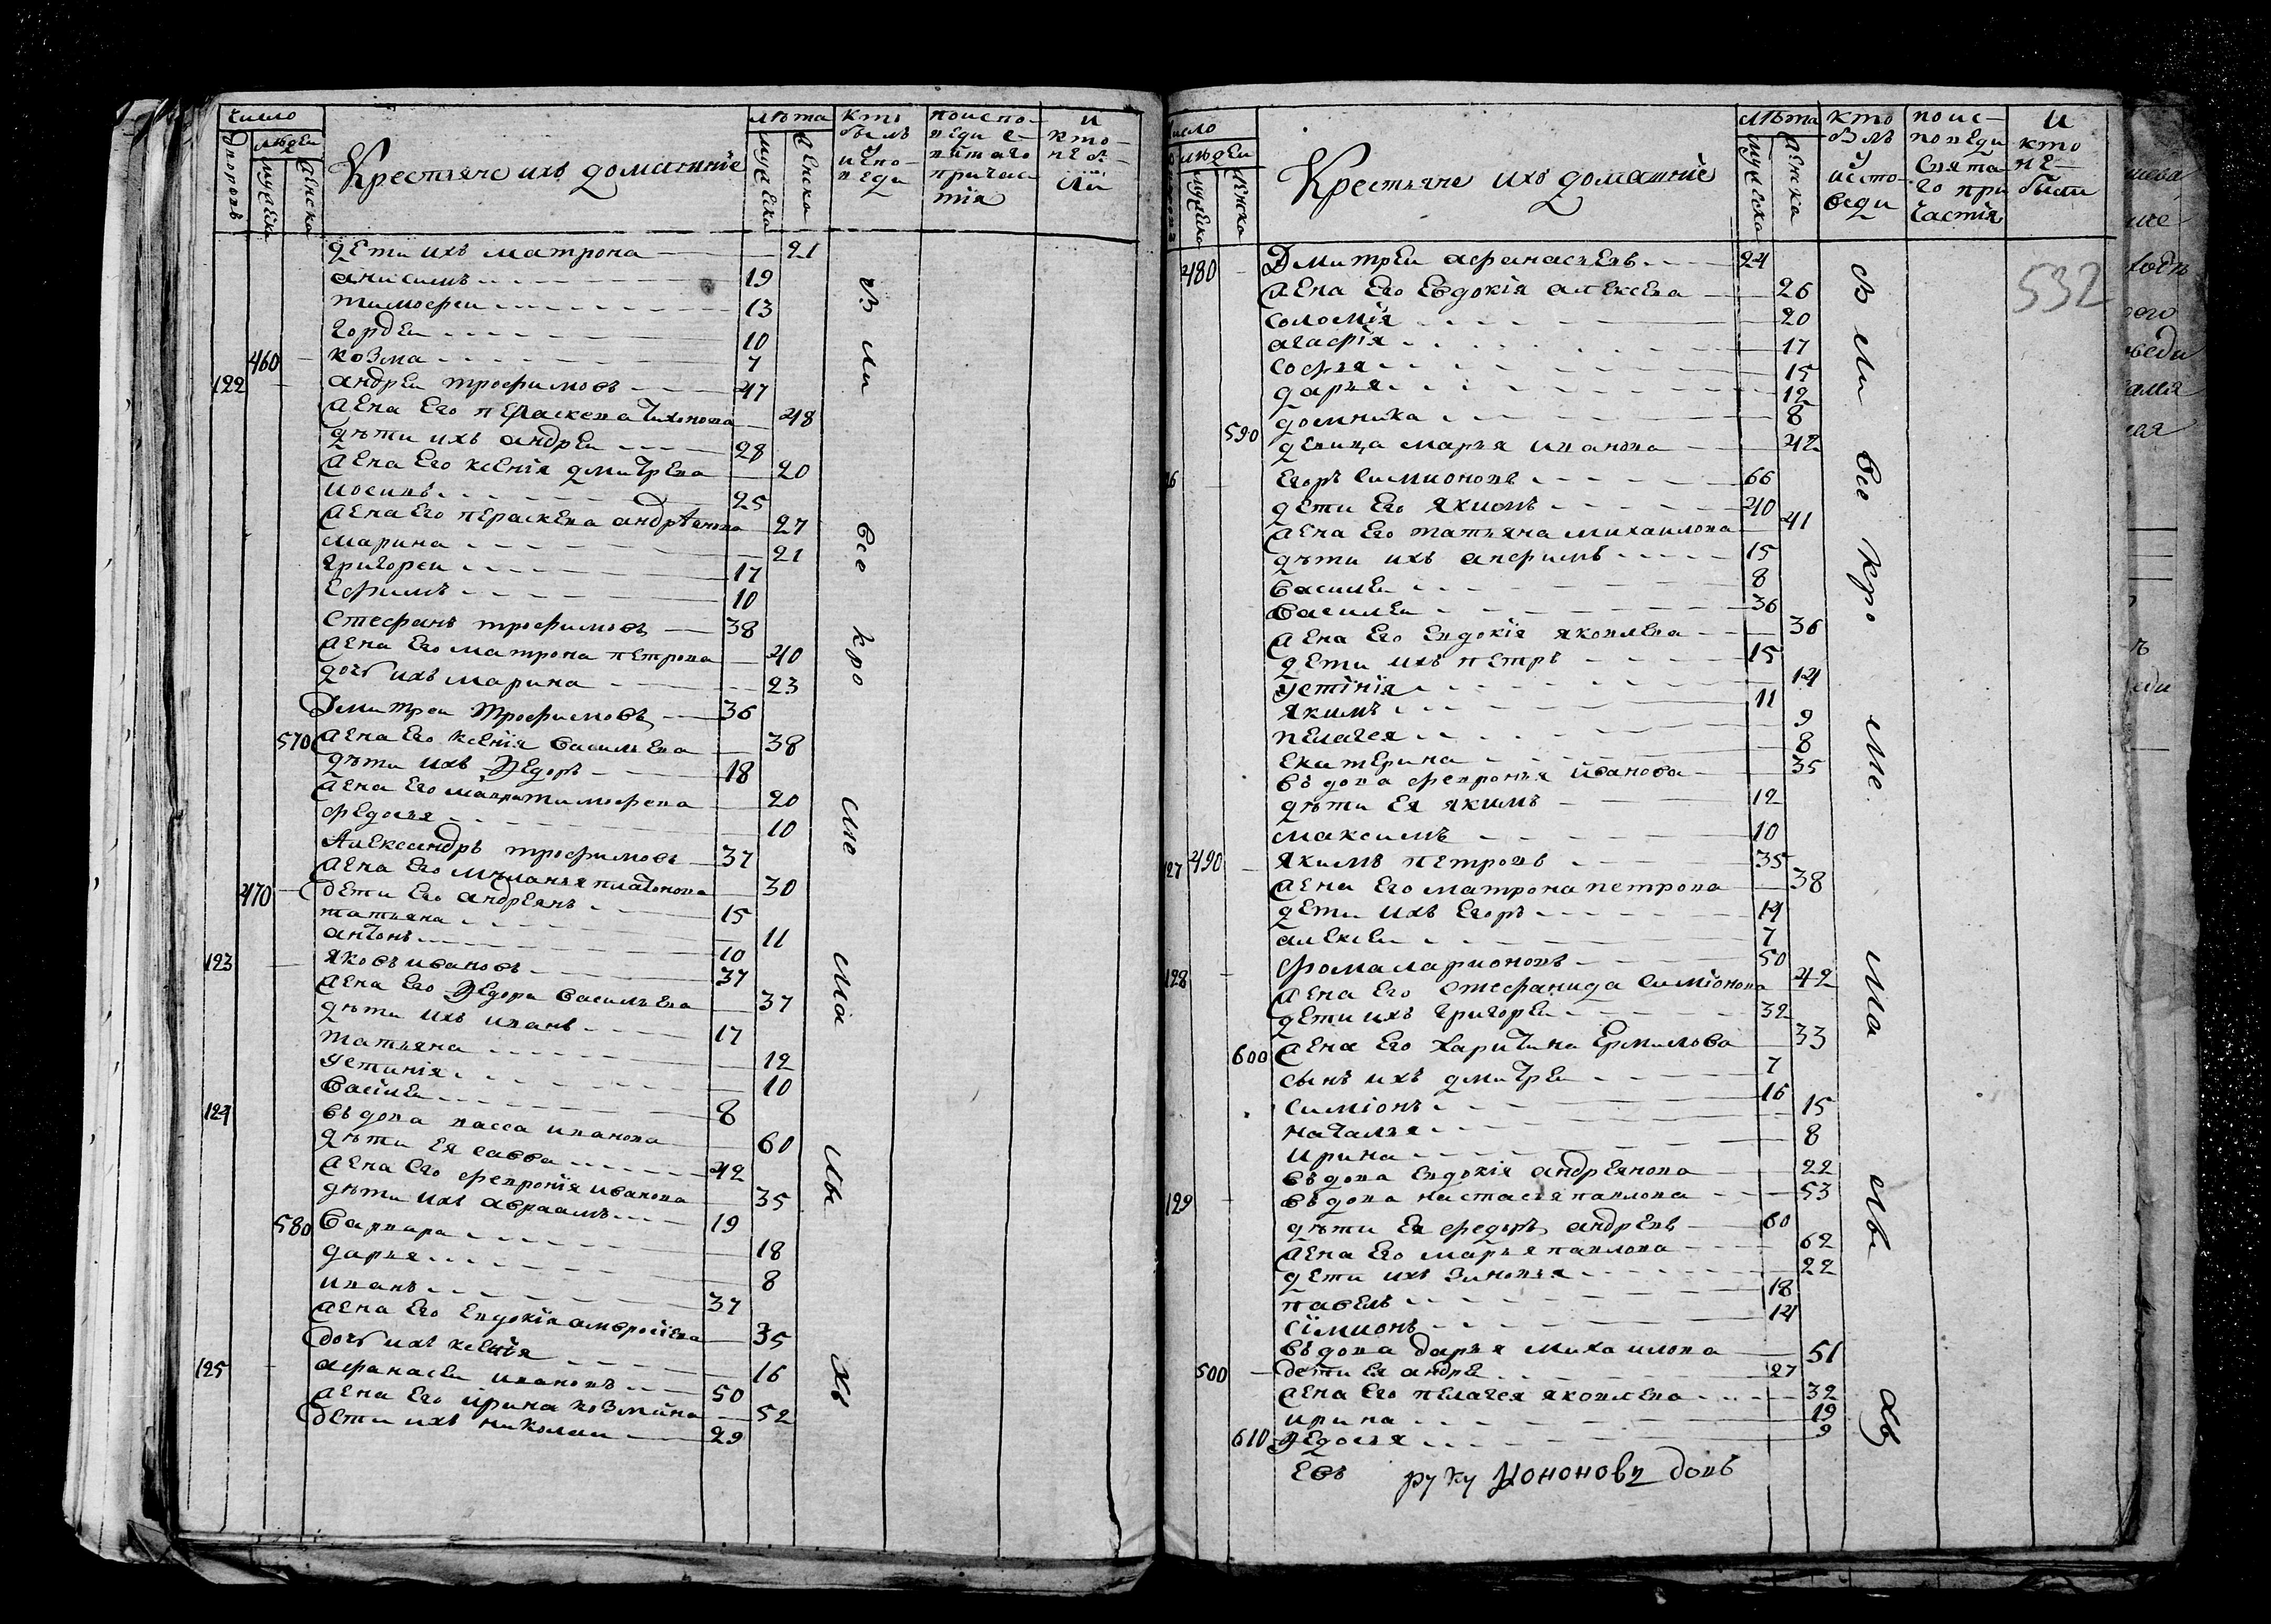 число
дворовъ
людей
мужеска
женска
Крестьяне ихъ домашнїе
лѣта
мужеска
женска
кто былъ у испо-веди
и кто не были
дети ихъ матрона 21
анисимъ 19
тимофеи 13
гордеи 10
460 козма 7
122 андреи трофимовъ 47
жена его пераскева тихонова 48
дѣти ихъ андреи 28
жена его ксенїя дмитрева 20
иосипъ 25
жена его пераскева андреянова 27
марина 21
григореи 17
ефимъ 10
стефанъ трофимовъ 38
жена его матрона петрова 40
дочь ихъ марина 23
Дмитреи трофимовъ 36
570 жена его ксенїя василъева 38
дѣти ихъ Ѳедоръ 18
жена его тимофева 20
федосья 10
Александръ трофимовъ 37
жена его мѣланья платонова 30
470 дети его андреянъ 15
татьяна 11
антонъ 10
123 яковъ ивановъ 37
жена его Ѳедора василъева 37
дѣти ихъ иванъ 17
татьяна 12
устинїя 10
васїлеи 8
124 въдова васса иванова 60
дѣти ея савва 42
жена его февронїя иванова 35
дѣти ихъ авраамъ 19
580 варвара 18
дарья 8
иванъ 37
жена его евдокїя амвросїева 35
дочь ихъ ксенїя 16
125 афанасеи ивановъ 50
жена его ирина козмина 52
дети ихъ николаи 29
В ли все кро ме ма лы хъ
число
людеи
мужеска
женска
Крестьяне ихъ домашнїе
лѣта
мужеска
женска
кто былъ у испо-веди
поис-поведи свята-го при частїя
и кто не были
532
480 Дмитреи афанасъевъ 24
жена его евдокїя алексева 26
соломїя 20
агафїя 17
софья 15
дарья 12
домника 8
590 девица марья иванова 42
егоръ симионовъ 66
дети его якимъ 40
жена его татьяна михаилова 41
дѣти ихъ анфимъ 15
василеи 8
василеи 36
жена его евдокїя яковлева 36
дети ихъ петръ 15
устїнїя 14
якимъ 11
пелагея 9
екатерина 8
въдова февронья иванова 35
дѣти ея якимъ 12
максимъ 10
127 490 якимъ петровъ 35
жена его матрона петрова 38
дети ихъ егоръ 14
алексеи 7
128 фома ларионовъ 50
жена его стефанида симїонова 42
дети ихъ григореи 32
600 жена его харитина ермилова 33
сынъ ихъ дмитреи 7
симїонъ 16
наталья 15
ирина 8
въдова евдокїя андреянова 22
129 въдова настасья павлова 53
дѣти ея федоръ андревъ 60
жена его марья павлова 62
дети ихъ зиновья 22
павелъ 18
сїмионъ 14
въдова дарья михаилова 51
500 дети ея андре 27
жена его пелагея яковлева 32
ирина 19
610 Ѳедосья 9
В ли все кро ме ма лы хъ
руку